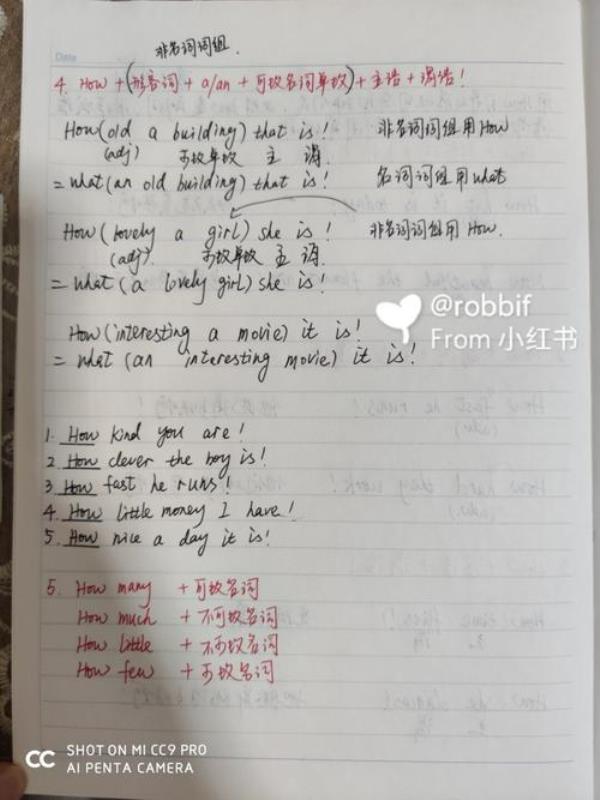 Date
非名词词组.
4. How + (形容词 + a/an + 可数名词单数) + 主语 + 谓语!
How (old a building) that is! 非名词词组用How
(adj) 可数单数 主 谓.
= what (an old building) that is! 名词词组用what
How (lovely a girl) she is! 非名词词组用How.
(adj). 可数单数 主 谓.
= what (a lovely girl) she is!
@robbif
From 小红书
How (interesting a movie) it is!
= what (an interesting movie) it is!
1. How kind you are!
2 How clever the boy is!
3 How fast he runs!
4. How little money I have!
5. How nice a day it is!
5. How many + 可数名词
How much + 不可数名词
How little + 不可数名词
How few + 可数名词
SHOT ON MI CC9 PRO
AI PENTA CAMERA